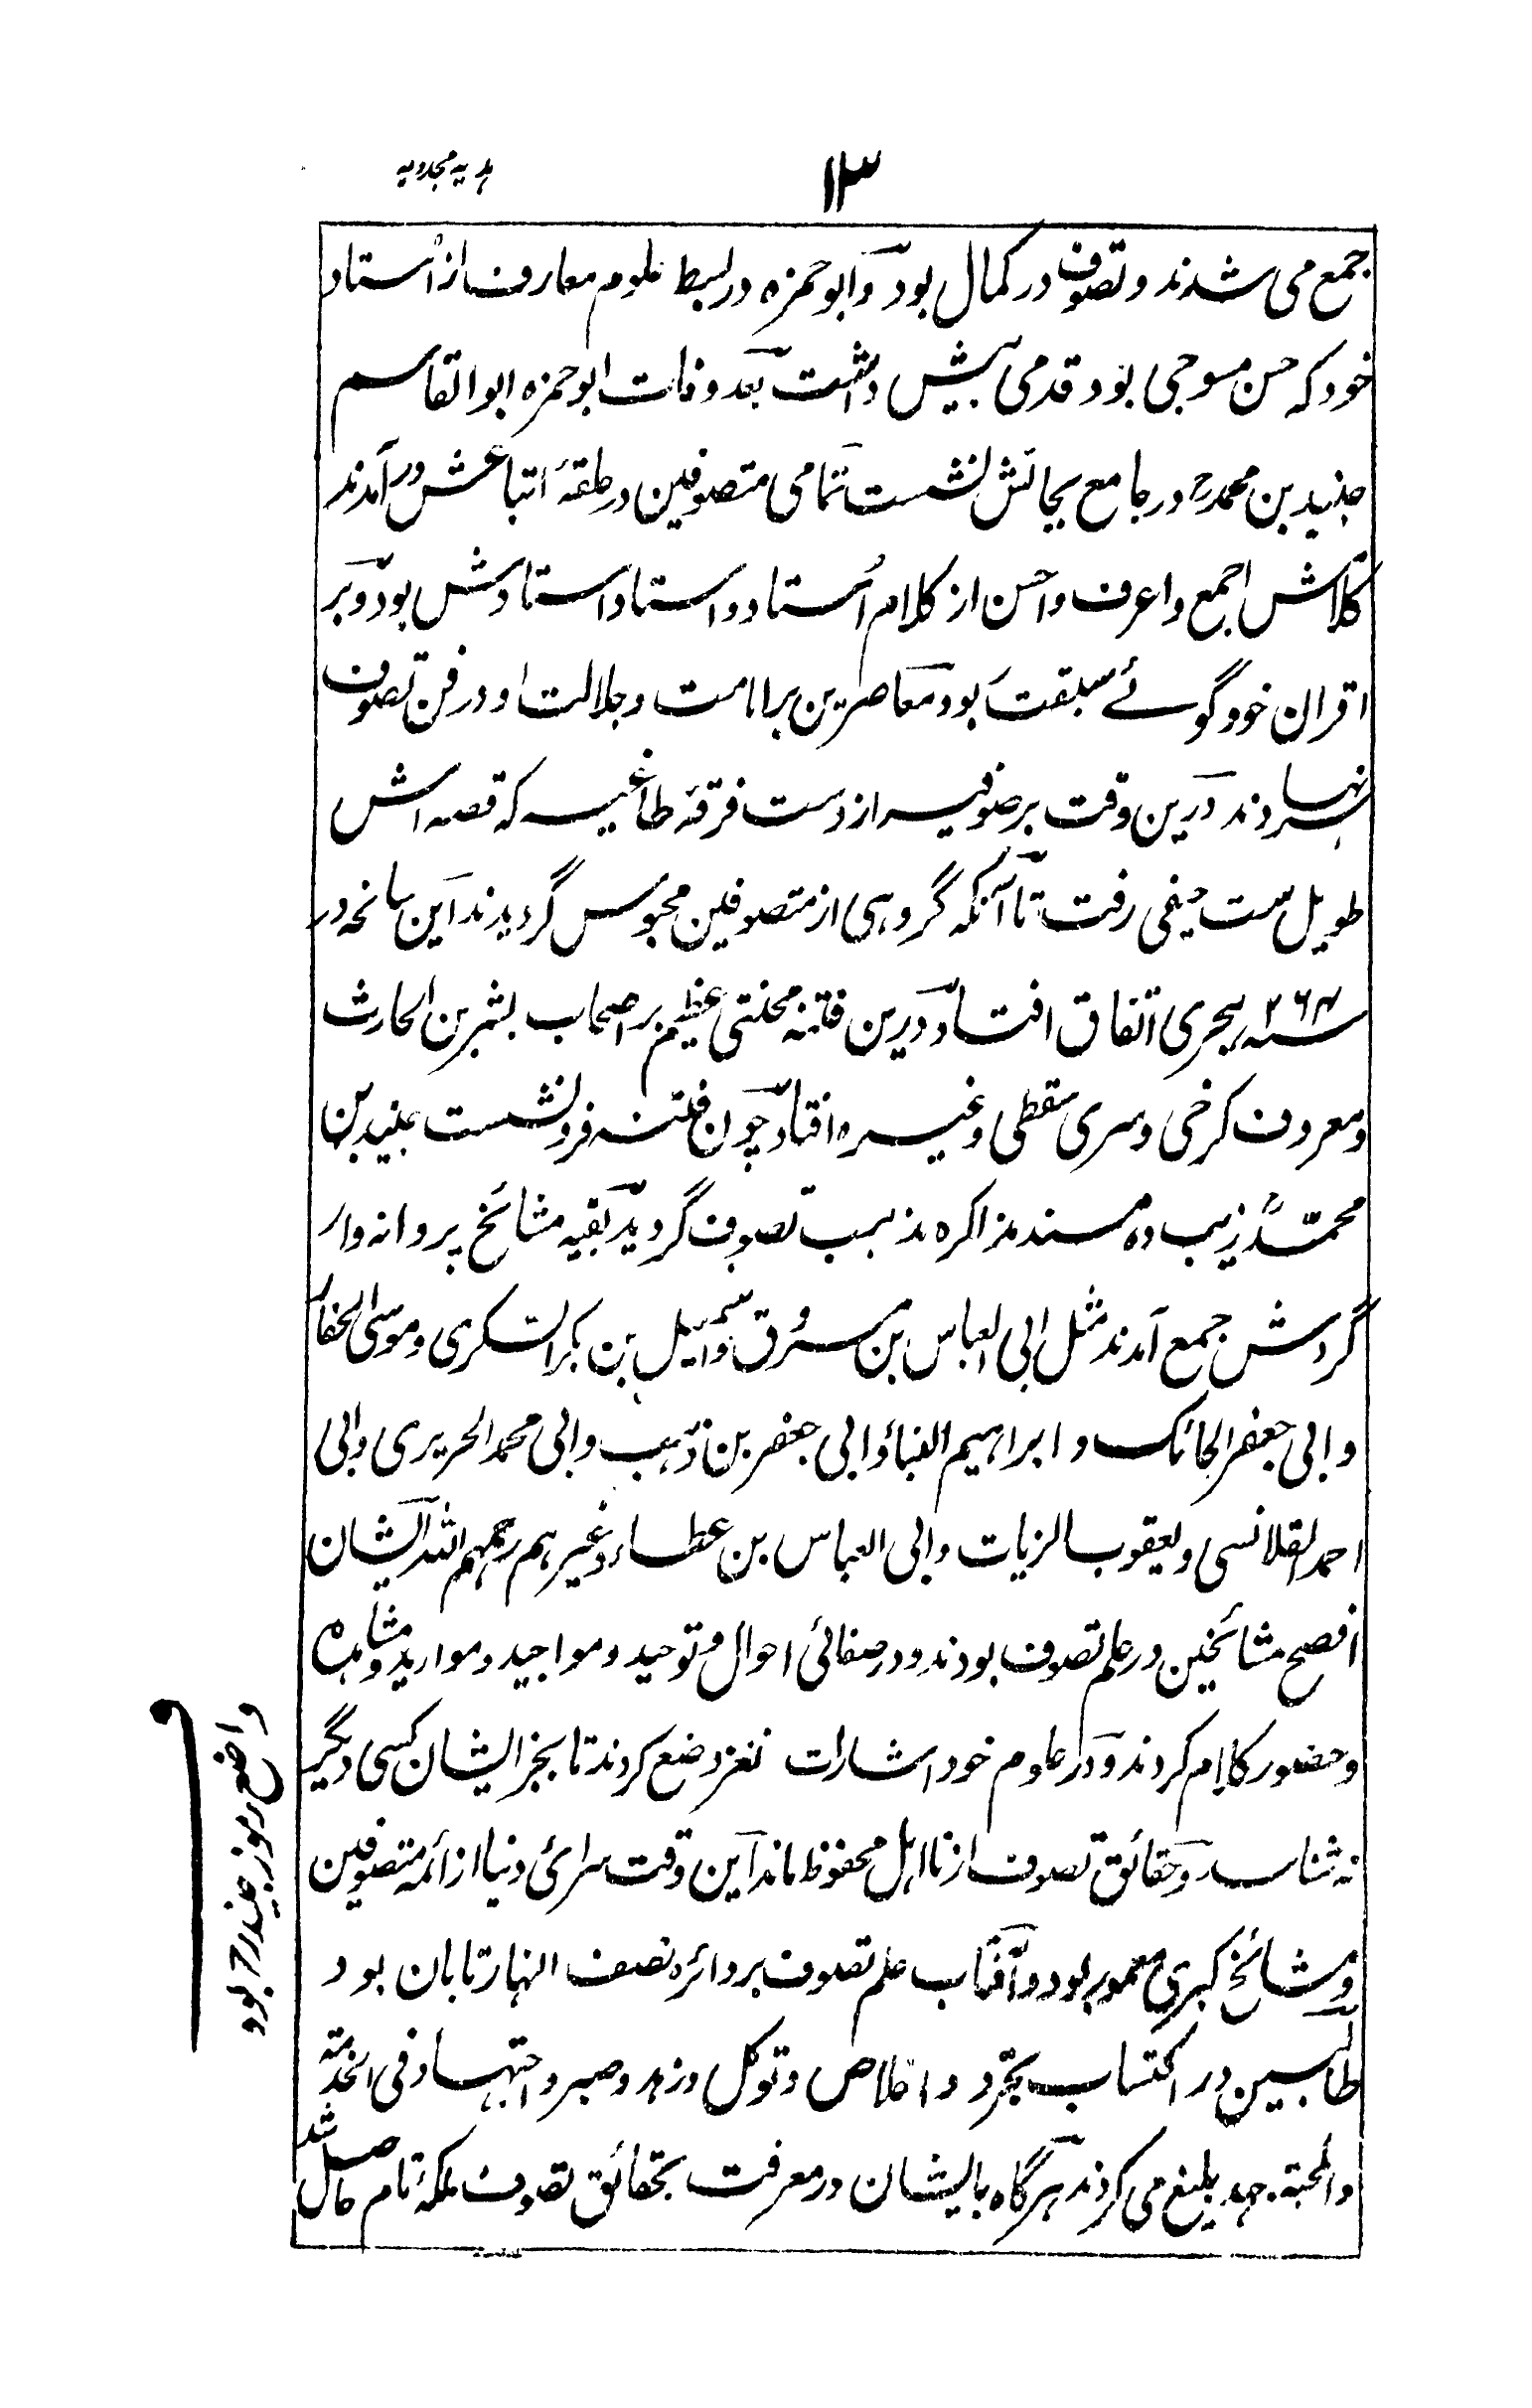 ۱۳
ہدیہ مجددیہ
جمع می شدند و تصوف در کمال بود و ابو حمزه در بسط علوم معارف از اُستاد
خود که حسن مسوحی بود قدمی بیش داشت بعد وفات ابو حمزه ابو القاسم
جنید بن محمدرح در جامع بجائش نشست تمامی متصوفین در حلقهٔ اتباعش در آمدند
کلامش اجمع و اعرف و احسن از کلام اُستاد و استاد استادش بود و بر
اقران خود گوئے سبقت بود معاصرین بر امامت و جلالت او در فن تصوف
نهادند درین وقت بر صوفیه از دست فرقهٔ طاغیه که قصه اش
طویل ست حیفی رفت تا آنکه گروهی از متصوفین محبوس گردیدند این سانحه در
سنه ۲۶۴ هجری اتفاق افتاد درین فتنه محنتی عظیم بر اصحاب بشر بن الحارث
و معروف کرخی و سری سقطی و غیره افتاد چون فتنه فرو نشست جنید بن
محمدرح زیب ده مسند مذاکره مذهب تصوف گردید بقیه مشائخ پروانه وار
گردش جمع آمدند مثل ابی العباس بن مسروق و اسمٰعیل بن بکر السکری و موسی الخفار
و ابی جعفر الحائک و ابراهیم البناؤ ابی جعفر بن ذهب و ابی محمد الحریری و ابی
احمد القلانسی و یعقوب الزیات و ابی العباس بن عطاء و غیر هم رحمهم الله ایشان
افصح مشائخین در علم تصوف بودند و در صفائی احوال و توحید و مواجید و موارید و مشاهده
و حضور کلام کردند و در علوم خود اشارات نغز وضع کردند تا بجز ایشان کسی دیگر
نه شناسد و حقائق تصوف از نا اهل محفوظ ماند این وقت سرائ دنیا از ائمه متصوفین
و مشائخ کبری معمور بود و آفتاب علم تصوف بر دائره نصف النهار تابان بود
طالبین در اکتساب تجرد و اخلاص و توکل و زهد و صبر و اجتهاد فی الخدمة
و المحبة جهد بلیغ می کردند هر گاه با ایشان در معرفت بحقائق تصوف ملکهٔ تام حاصل شد
واضع رموز جنید رح بود